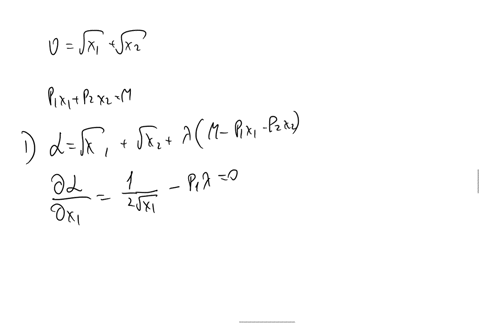 U = √x₁ + √x₂
P₁x₁ + P₂x₂ = M
1) ℒ = √x₁ + √x₂ + λ(M - P₁x₁ - P₂x₂)
∂ℒ/∂x₁ = 1/(2√x₁) - P₁λ = 0